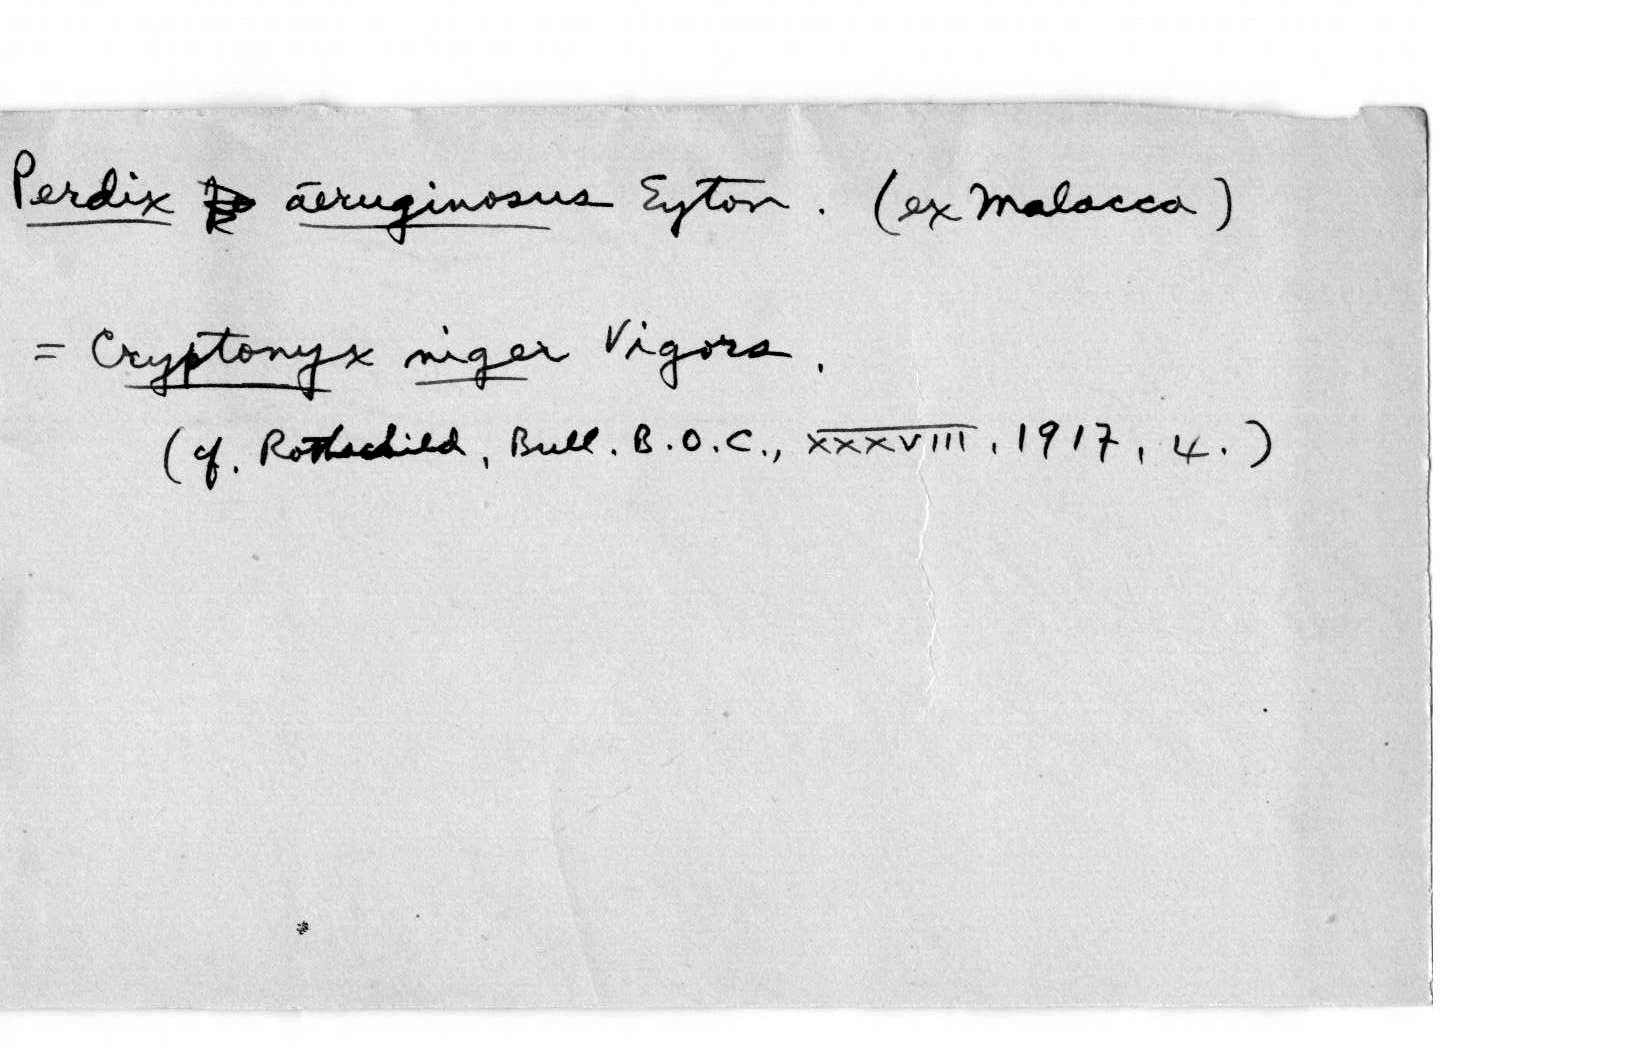 Perdix aeruginosus Eyton. (ex Malacca)
= Cryptonyx niger Vigors.
(cf. Rothschild, Bull. B.O.C., XXXVIII, 1917, 4.)